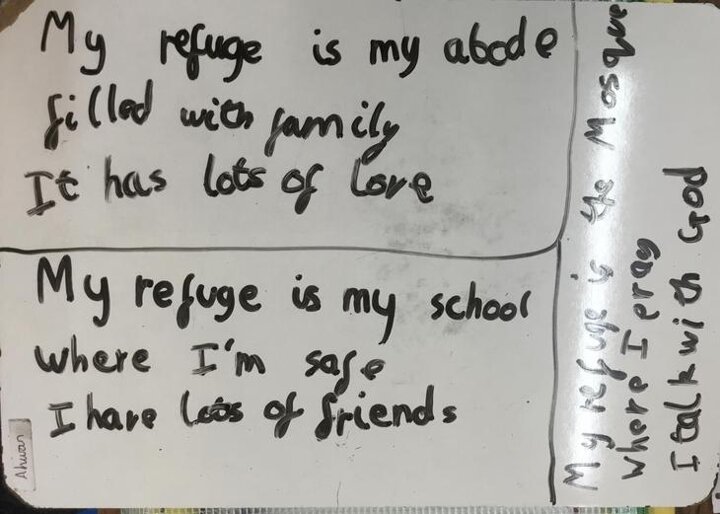 My refuge is my abode
filled with family
It has lots of love
My refuge is my school
where I'm safe
I have lots of friends
My refuge is the Mosque
where I pray
I talk with God